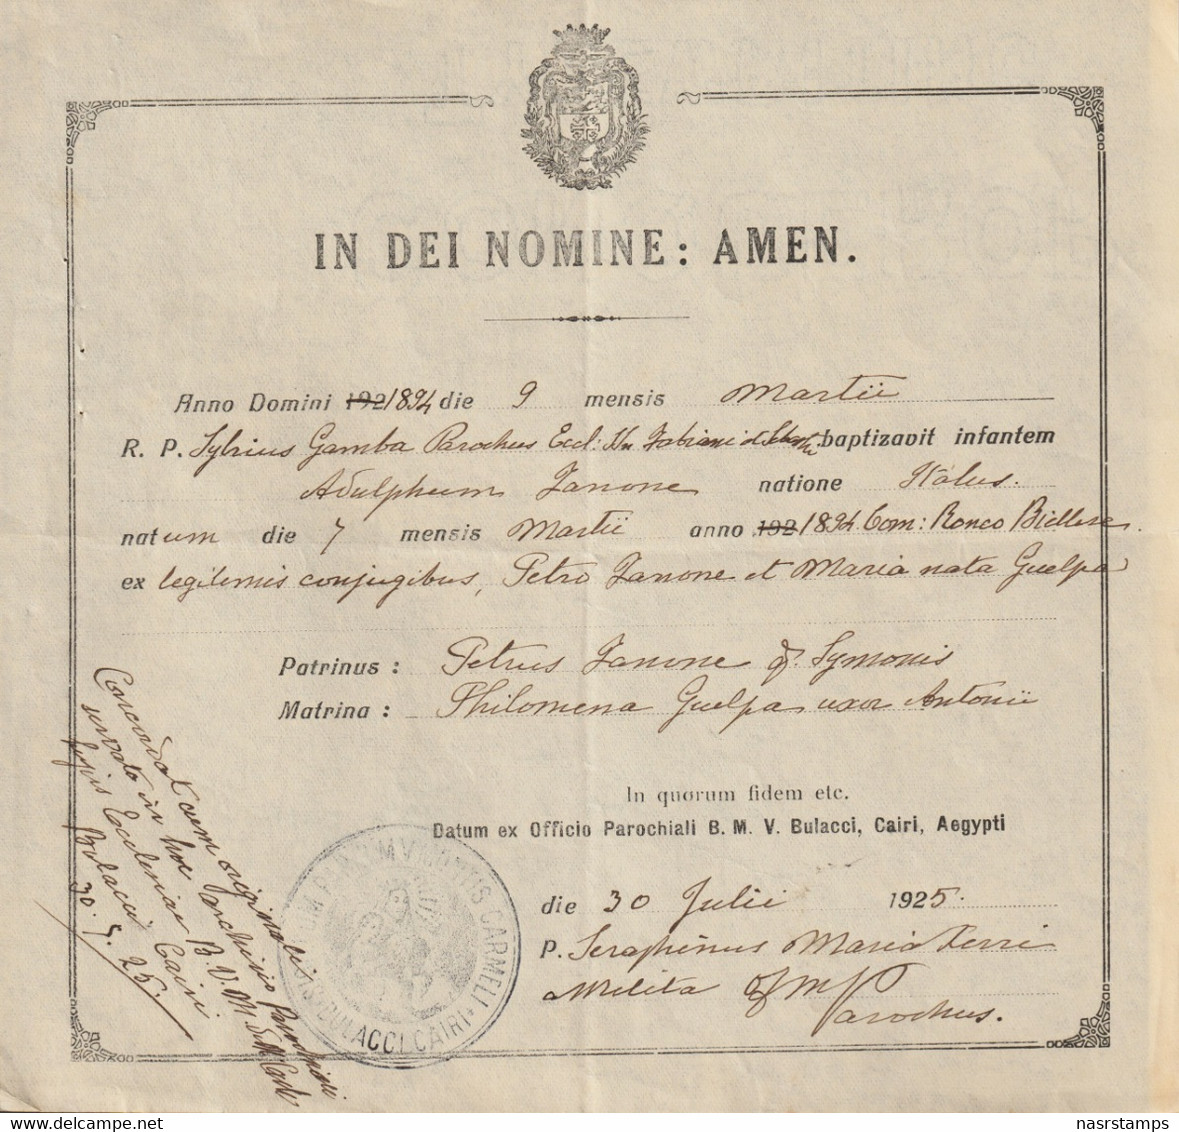 IN DEI NOMINE: AMEN.
Anno Domini 192 1894 die 9 mensis Martii
R. P. Sylvius Gamba Parochus Eccl: Fabiani et baptizavit infantem
Adulpheum Zanone natione Italus.
natum die 7 mensis Martii anno 192 1894 Com: Ronco Biellese
ex legitemis conjugibus, Petro Zanone et Maria nata Guelpa
Patrinus : Petrus Zanone q. Symonis
Matrina : Philomena Guelpa uxor Antonii
In quorum fidem etc.
Datum ex Officio Parochiali B. M. V. Bulacci, Cairi, Aegypti
die 30 Julii 1925.
P. Seraphinus Maria
a Melita Ofm
Parochus.
Concordat cum originali
servato in hoc Archivio Parochiali
hujus Ecclesiae B. V. M.
Bulacci Cairi
30. 7. 25.
MONTIS CARMELI
BULACCI CAIRI
nasrstamps